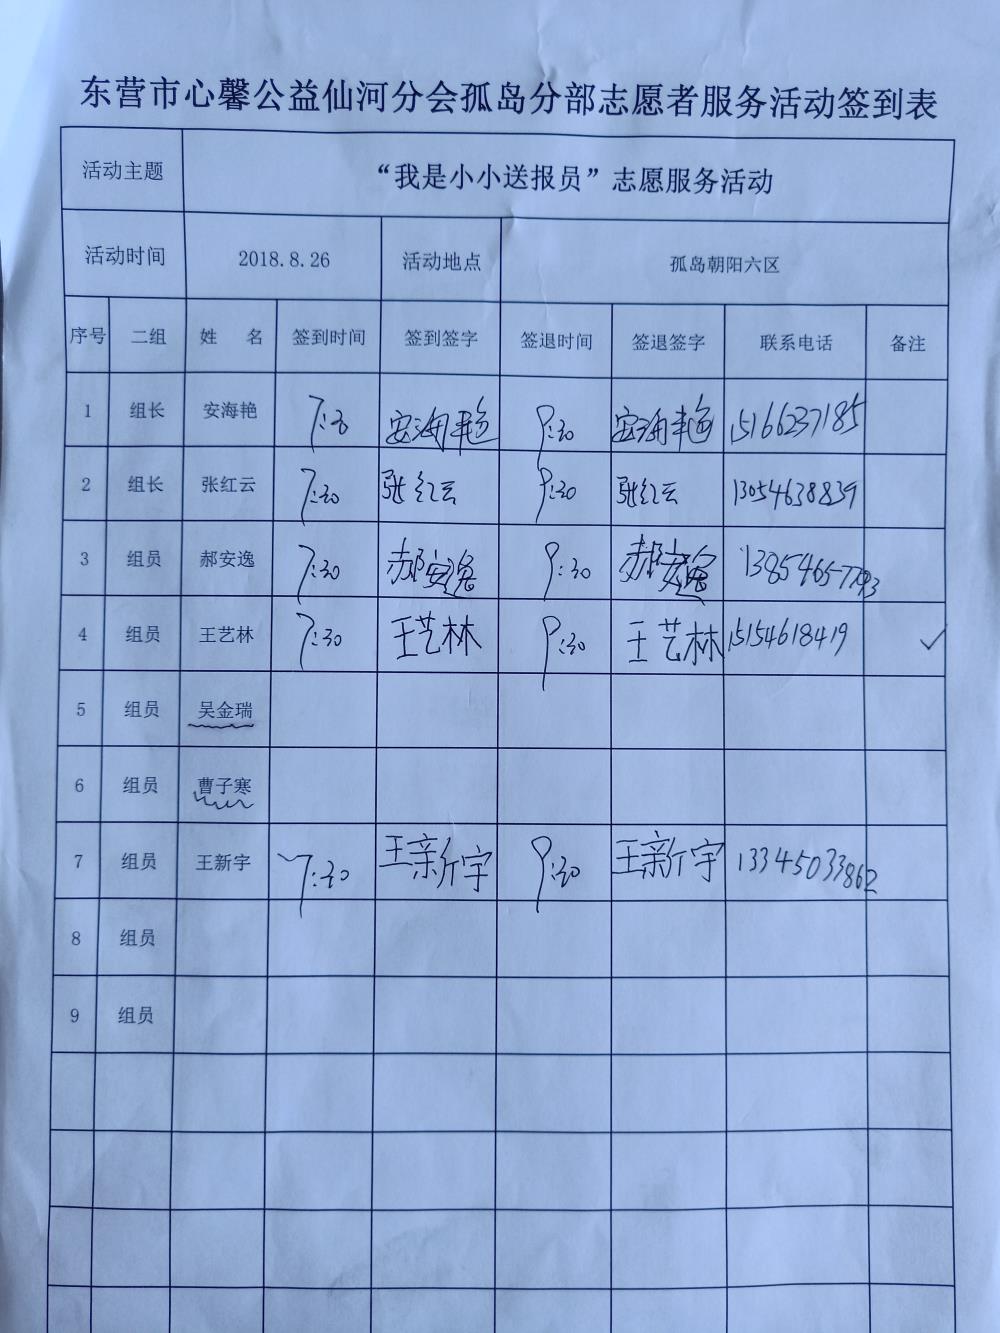 东营市心馨公益仙河分会孤岛分部志愿者服务活动签到表
活动主题 “我是小小送报员”志愿服务活动
活动时间 2018.8.26 活动地点 孤岛朝阳六区
序号 二组 姓 名 签到时间 签到签字 签退时间 签退签字 联系电话 备注
1 组长 安海艳 安海艳 9:30 安海艳 15166237185
2 组长 张红云 7:30 张红云 9:30 张红云 13054638839
3 组员 郝安逸 7:30 郝安逸 9:30 郝安逸
4 组员 王艺林 7:30 王艺林 9:30 王艺林 15154618419 ✓
5 组员 吴金瑞
6 组员 曹子寒
7 组员 王新宇 7:30 王新宇 9:30 王新宇 13345033862
8 组员
9 组员